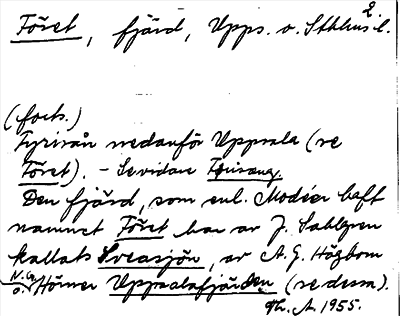 2.
Föret, fjärd, Upps. o. Sthlms l.
(forts.)
Fyrisån nedanför Uppsala (se
Föret). – Se vidare Fyrisång.
Den fjärd, som enl. Modéer haft
namnet Föret har av J. Sahlgren
kallats Sveasjön, av A. G. Högbom
o. N. G. Hörner Uppsalafjärden (se dessa).
Th. A. 1955.